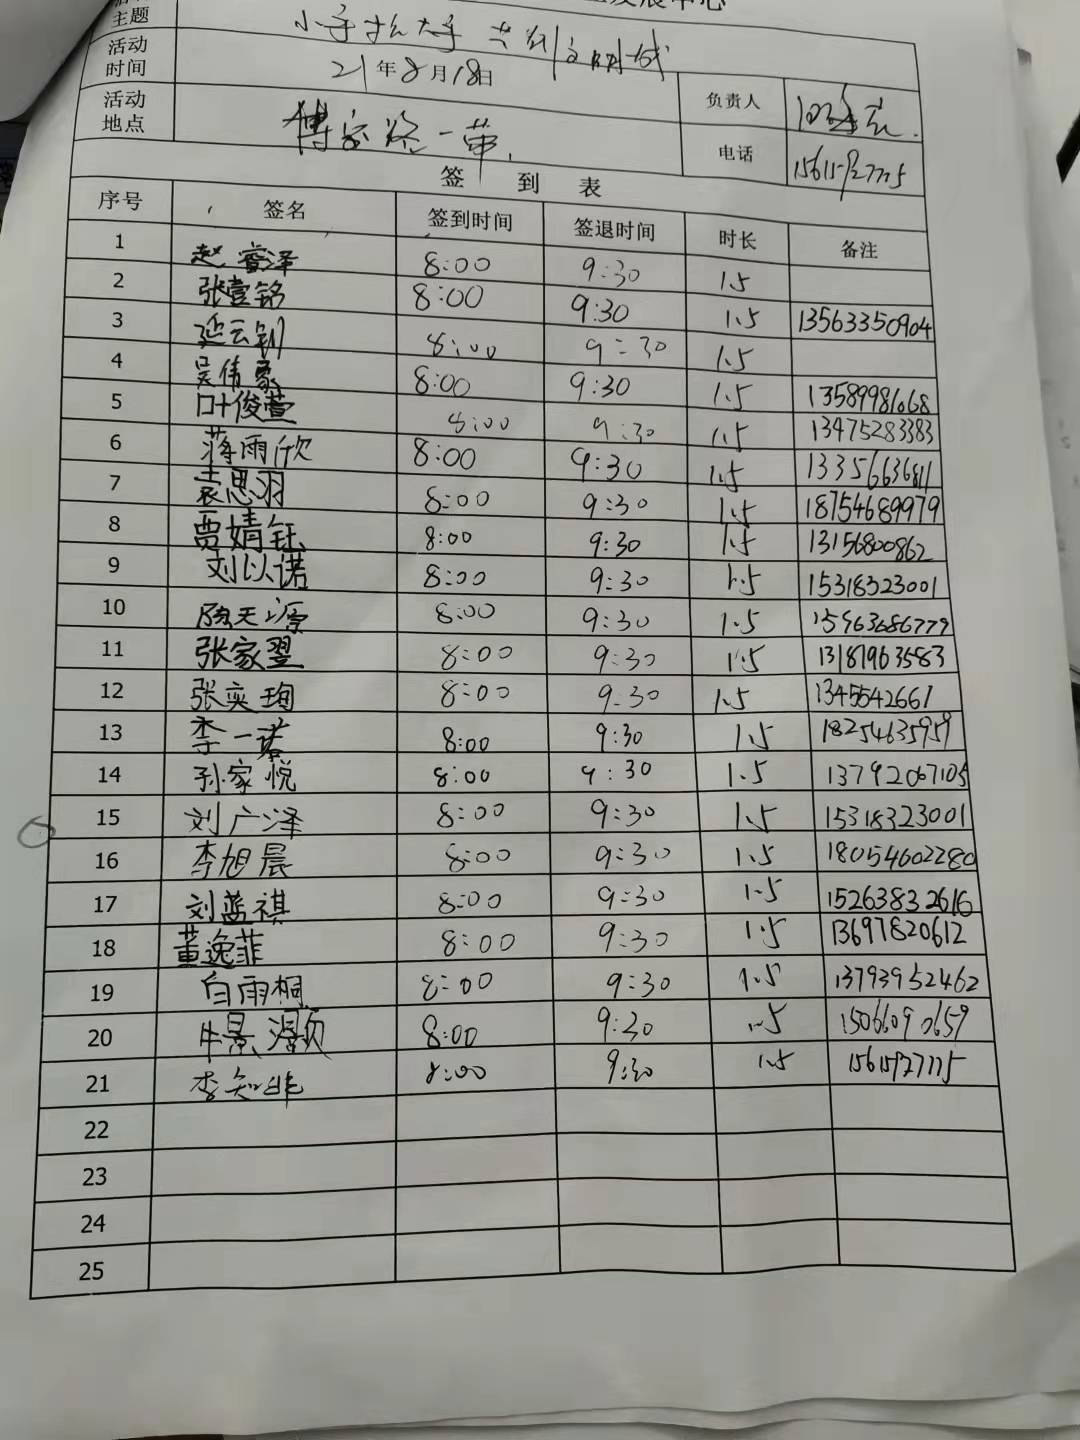 主题 小手拉大手 共创文明城
活动时间 21年8月18日 负责人
活动地点 傅家路一带 电话 15615927775
签到表
序号 签名 签到时间 签退时间 时长 备注
1 赵睿泽 8:00 9:30 1.5
2 张壹铭 8:00 9:30 1.5 13563350904
3 延云钊 8:00 9:30 1.5
4 吴伟豪 8:00 9:30 1.5 13589981668
5 叶俊萱 8:00 9:30 1.5 13475283383
6 蒋雨欣 8:00 9:30 1.5 13356636811
7 袁思羽 8:00 9:30 1.5 18754689979
8 贾婧钰 8:00 9:30 1.5 13156800862
9 刘以诺 8:00 9:30 1.5 15318323001
10 陈天源 8:00 9:30 1.5 15963686779
11 张家翌 8:00 9:30 1.5 13181963583
12 张奕珣 8:00 9:30 1.5 1345542661
13 李一诺 8:00 9:30 1.5 18254635959
14 孙家悦 8:00 9:30 1.5 13792067105
15 刘广泽 8:00 9:30 1.5 15318323001
16 李旭晨 8:00 9:30 1.5 18054602280
17 刘蓝祺 8:00 9:30 1.5 15263832616
18 董逸菲 8:00 9:30 1.5 13697820612
19 白雨桐 8:00 9:30 1.5 13793952462
20 牛景灏 8:00 9:30 1.5 15066090659
21 李知非 8:00 9:30 1.5 15615927775
22
23
24
25